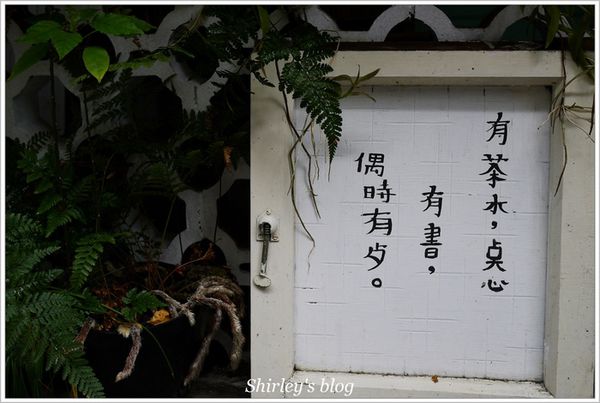 有茶水，奌心
有書，
偶時有歺。
Shirley's blog